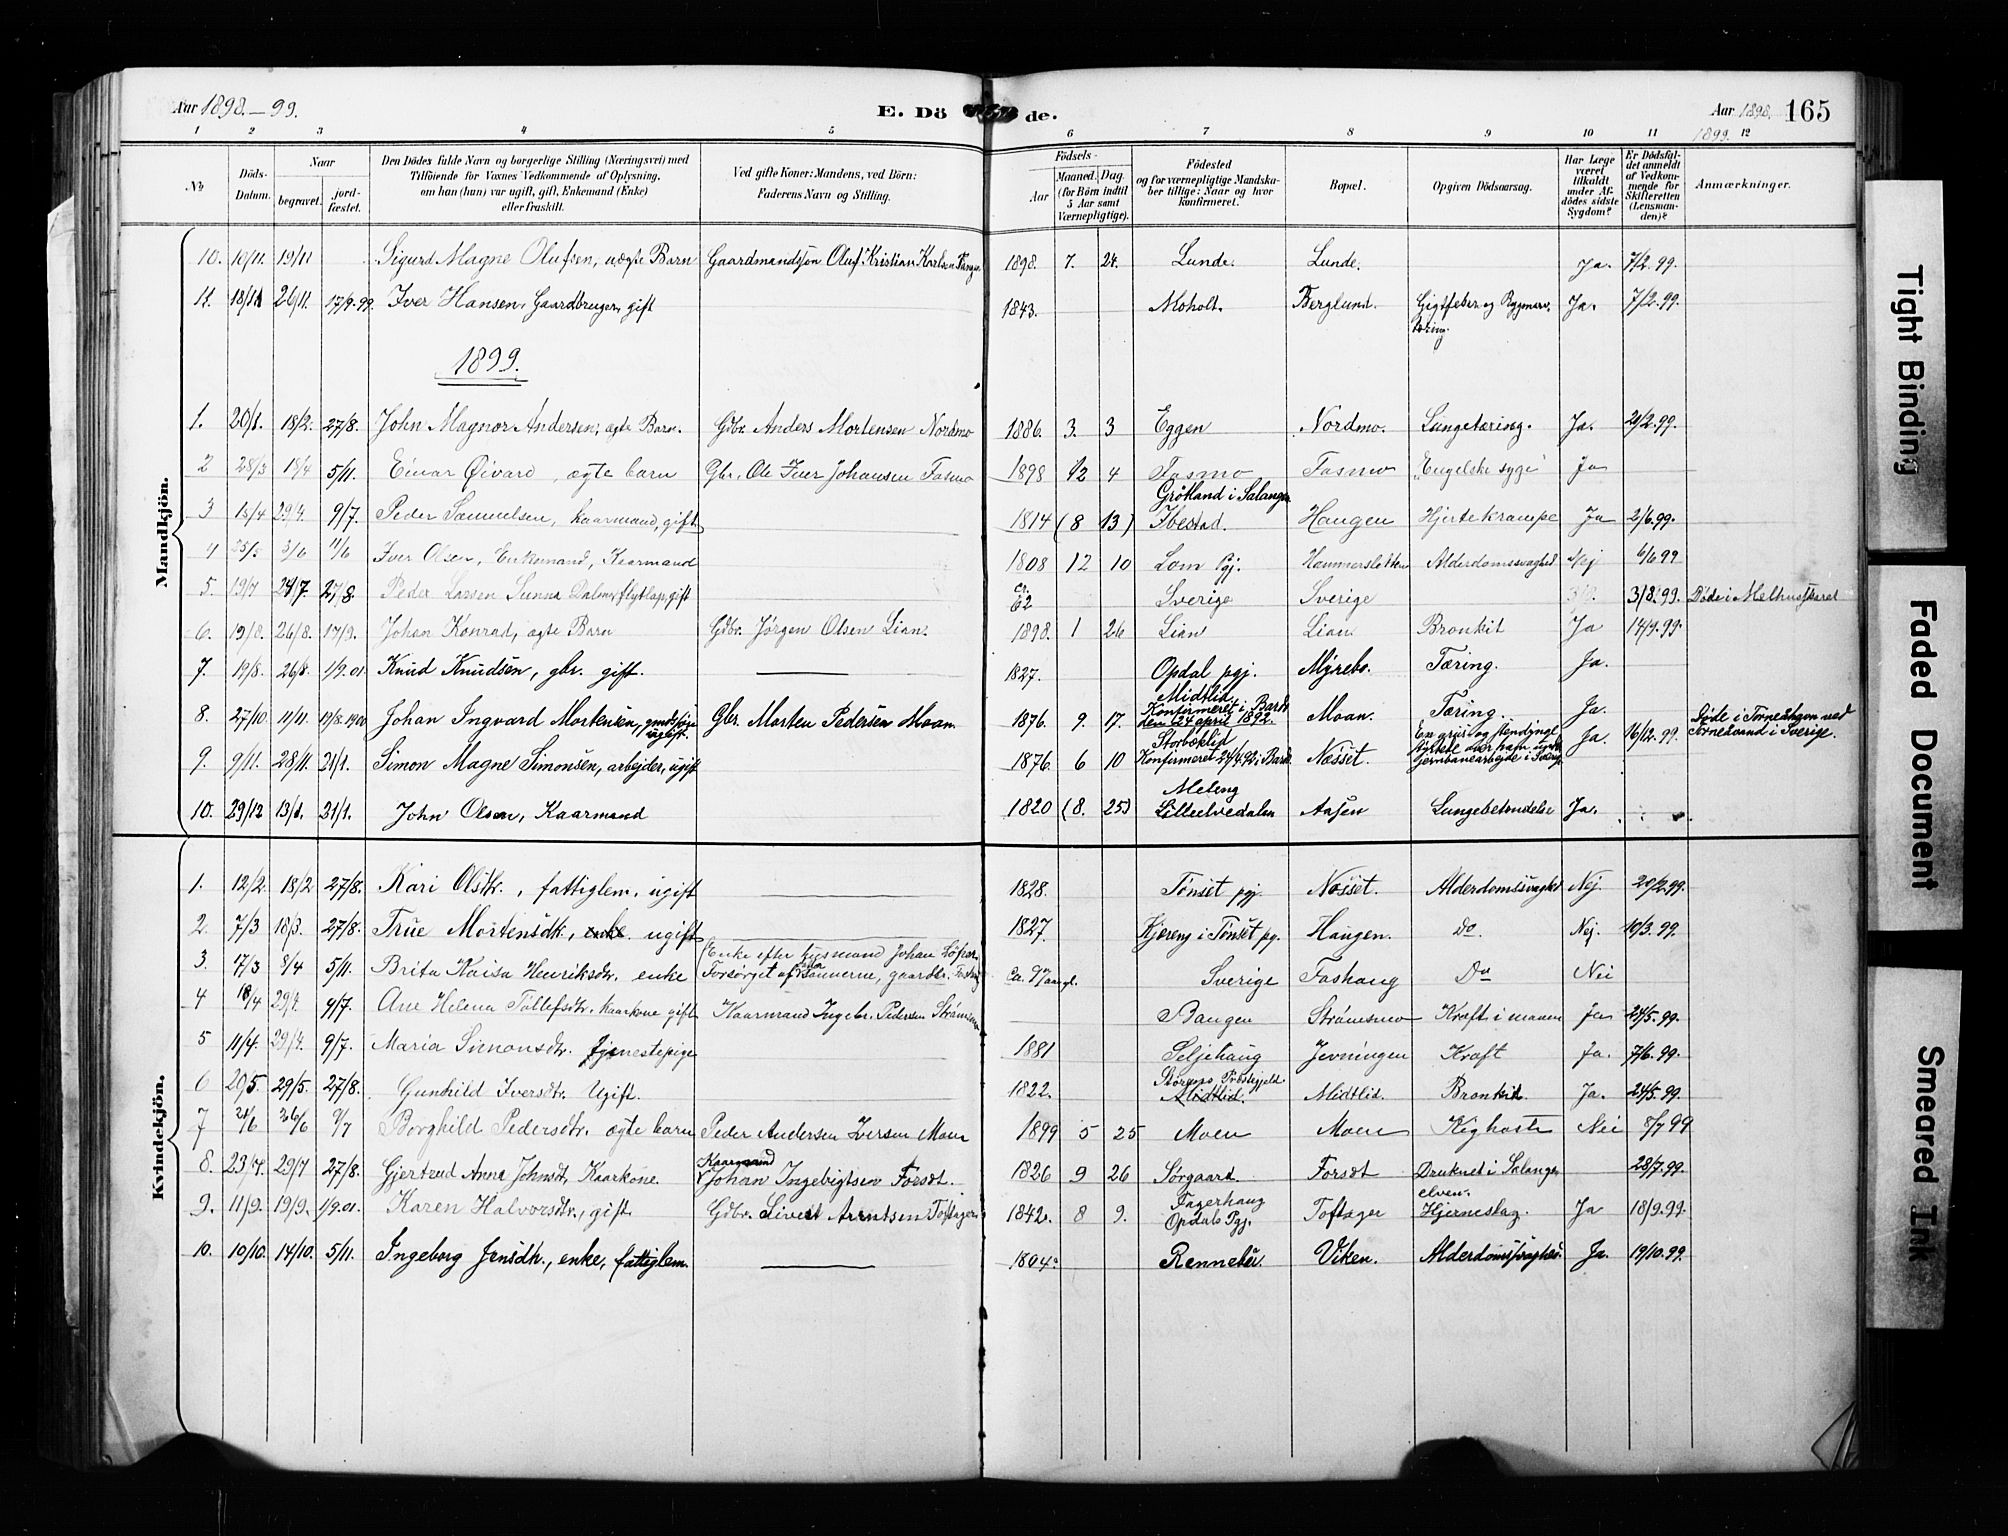 Aar 1898.-99. E. Döde. Aar 1898. 1899. 165
1 2 3 4 5 6 7 8 9 10 11 12
No Döds-Datum. Naar begravet. jord-fæstet. Den Dödes fulde Navn og borgerlige Stilling (Næringsvei) med Tilföiende for Voxnes Vedkommende af Oplysning, om han (hun) var ugift, gift, Enkemand (Enke) eller fraskilt. Ved gifte Koner: Mandens, ved Börn: Faderens Navn og Stilling. Födsels- Aar Maaned. Dag. (for Börn indtil 5 Aar samt Værnepligtige). Födested og for værnepligtige Mandskaber tillige: Naar og hvor konfirmeret. Bopæl. Opgiven Dödsaarsag. Har Læge været tilkaldt under Afdödes sidste Sygdom? Er Dödsfaldet anmeldt af Vedkommende for Skifteretten (Lensmanden)? Anmærkninger.
Mandkjön.
10. 10/11. 19/11 Sigurd Magne Olufsen, uægte Barn Gaardmandssön Oluf Kristian Karlsen 1898. 7. 24. Lunde. Lunde. Ja. 7/2.99.
11. 18/11 26/11. 17/9.99. Iver Hansen, Gaardbruger, gift 1843. Moholt. Berglund. Gigtfeber og Rygmarvtæring. Ja. 7/2.99.
1899.
1. 20/1. 18/2. 27/8. John Magnor Andersen, ægte Barn. Gdbr. Anders Mortensen Nordmo 1886. 3. 3 Eggen Nordmo. Lungetæring. Ja. 21/2.99.
2 28/3 18/4 5/11. Einar Øivard, ægte barn Gbr. Ole Iver Johansen Fosmo 1898 12 4 Fosmo Fosmo "Engelske syge" Ja
3 13/4 29/4. 9/7. Peder Samuelsen, kaarmand, gift 1814 (8 13) Grötland i Salangen Ibestad. Haugen Hjertekrampe Ja 2/6.99.
4 25/5 3/6 11/6 Iver Olsen, Enkemand, Kaarmand 1808 12 10 Lom Pgj. Alderdomssvaghed Nej 6/6 99
5. 19/7 24/7. 27/8. Peder Larsen Sunna flytlap, gift ca. 62 Sverige Sverige 3/8.99. Döde i Melhusskaret
6. 19/8. 26/8. 17/9. Johan Konrad, ægte Barn Gdbr. Jørgen Olsen Lian. 1898. 1 26 Lian Lian. Bronkit Ja 14/9.99.
7. 19/8. 26/8. 1/9.01. Knud Knudsen, gbr. gift. 1827. Opdal pgj. Myrebo. Tæring. Ja.
8. 27/10. 11/11. 19/8.1900 Johan Ingvard Mortensen, ugift. Gbr. Morten Pedersen Moan 1876. 9. 17. Midtlid Konfirmeret i Bardo den 24 april 1892. Moan. Tæring. Ja.
9. 9/11. 28/11. 21/1. Simon Magne Simonsen, arbejder, ugift 1876. 6 10 Storbæklid Konfirmeret 24/4.92 i Bardo Næsset. En grus og stendynge over ham under Jernbanearbejde i Sverige Ja. 16/12.99. Döde i Tornehaugen ved Tornevand i Sverige.
10. 29/12 13/1. 21/1. John Olsen, Kaarmand 1820 (8. 25) Meleng Lilleelvedalen Aasen Lungebetændelse Ja.
Kvindekjön.
1. 12/2. 18/2 27/8. Kari Olsdtr., fattiglem, ugift 1828. Tönset pgj. Næsset. Alderdomssvaghed Nej. 20/2.99.
2. 7/3 18/3. 27/8. True Mortensdtr., enke ugift 1827. Kjæreng i Tönset pg. Haugen. Do. Nej. 10/3.99.
3. 17/3 8/4 5/11. Brita Kaisa Henriksdtr. enke (Enke efter Husmand Johan Forsørget af sønnerne, gaardbr. ca. 90 aar gl. Sverige Foshaug Do Nei
4 18/4 29/4. 9/7. Ane Helena Tollefsdtr. kaarkone gift Kaarmand Ingebr. Pedersen Strømsmo Bangen Strømsmo Kræft i maven Ja 24/5.99.
5 11/4. 29/4. 9/7. Maria Simonsdtr. tjenestepige 1881 Seljehaug Jevningen Kræft Ja. 7/6.99.
6 20/5. 29/5. 27/8. Gunhild Iversdtr. Ugift. 1822. Störens Præstegjeld Midtlid. Midtlid. Bronkit. Ja. 24/5.99.
7 21/6 26/6 9/7 Borghild Pedersdtr. ægte barn Peder Andersen Iversen Moen 1899 5 25 Moen Moen Kighoste Nei 8/7 99
8. 23/7. 29/7 27/8. Gjertrud Anna Johnsdt. Kaarkone. Kaarmand Johan Ingebrigtsen Forsdt. 1826 9 26 Sørgaard. Forsdt Druknet i Salangselven. 28/7.99.
9. 11/9. 19/9. 1/9.01. Karen Halvorsdtr., gift Gdbr. Sivert Arntsen Toftager 1842. 8 9. Fagerhaug Opdals Pgj. Toftager Hjerneslag. Ja 18/9.99.
10. 10/10. 14/10. 5/11. Ingeborg Jensdtr., enke, fattiglem. 1804. Rennebu. Viken. Alderdomssvaghed. Ja. 19/10.99.
Tight Binding
Faded Document
Smeared Ink